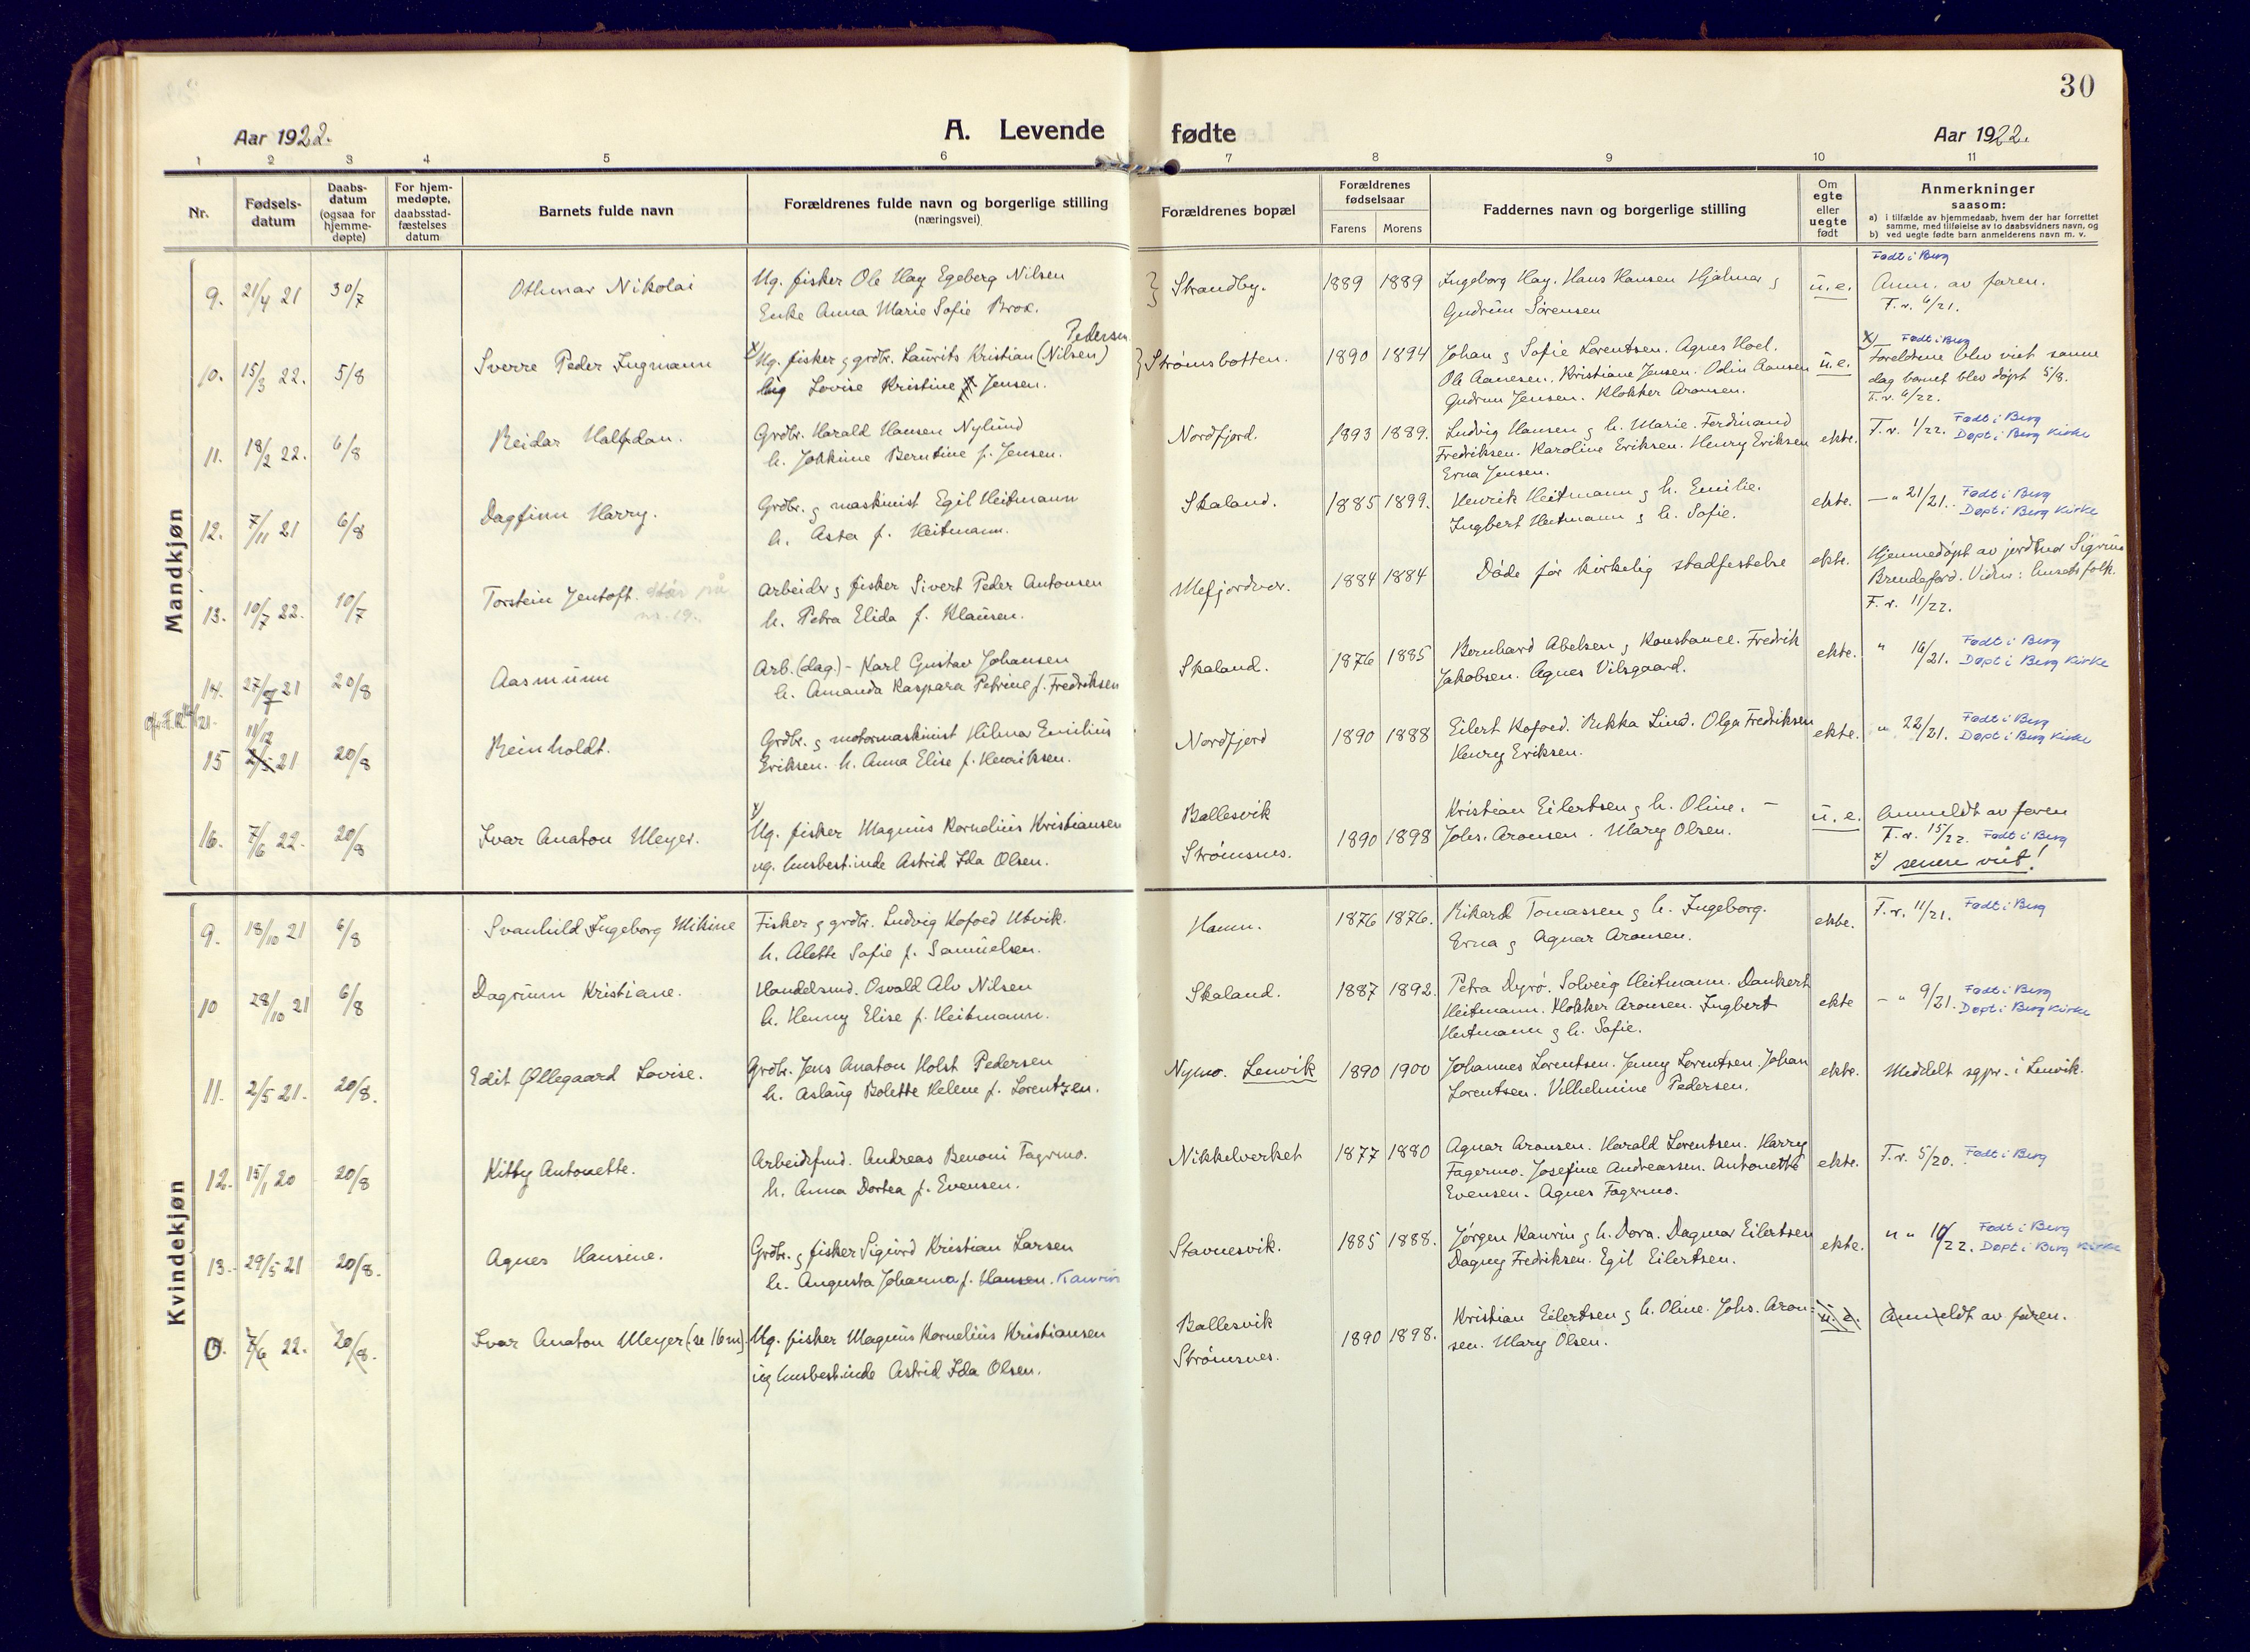 30
Aar 1922.
A. Levende fødte
Aar 1922.
1 2 3 4 5 6 7 8 9 10 11
Nr.
Fødsels-
datum
Daabs-
datum
(ogsaa for
hjemme-
døpte)
For hjem-
medøpte,
daabsstad-
fæstelses
datum
Barnets fulde navn
Forældrenes fulde navn og borgerlige stilling
(næringsvei)
Forældrenes bopæl
Forældrenes
fødselsaar
Farens Morens
Faddernes navn og borgerlige stilling
Om
egte
eller
uegte
født
Anmerkninger
saasom:
a) i tilfælde av hjemmedaab, hvem der har forrettet
samme, med tilføielse av to daabsvidners navn, og
b) ved uegte fødte barn anmelderens navn m. v.
Mandkjøn
9. 21/4 21 30/7 Othmar Nikolai
Ug. fisker Ole Hay Egeberg Nilsen
Enke Anna Marie Sofie Brox.
Strandby. 1889 1889
Ingeborg Hay. Hans Hansen Hjalmar &
Gudrun Sørensen
u.e.
Født i Berg
Anm. av faren.
F.r. 6/21.
10. 15/3 22. 5/8 Sverre Peder Ingmann
Pedersen
x) Ug. fisker & grdbr. Laurits Kristian (Nilsen)
Lovise Kristine Jensen.
Strømsbotten. 1890 1894
Johan & Sofie Lorentsen. Agnes Hoel.
Ole Aanesen. Kristiane Jensen. Odin Aansen
Gudrun Jensen. Klokker Aronsen.
u.e.
x) Født i Berg
Foreldrene blev viet samme
dag barnet blev døpt 5/8.
F.r. 6/22.
11. 18/2 22. 6/8 Reidar Halfdan.
Grdbr. Harald Hansen Nylund
h. Jokkime Berntine f. Jensen.
Nordfjord. 1893 1889.
Ludvig Hansen & h. Marie. Ferdinand
Fredriksen. Karoline Eriksen. Henry Eriksen
Erna Jensen.
ekte.
F.r. 1/22. Født i Berg
Døpt i Berg Kirke
12. 7/11 21 6/8 Dagfinn Harry.
Grdbr. & maskinist Egil Heitmann
h. Asta f. Heitmann.
Skaland. 1885 1899.
Henrik Heitmann & h. Emilie.
Ingbert Heitmann & h. Sofie.
ekte.
— " 21/21. Født i Berg
Døpt i Berg Kirke
13. 10/7 22. 10/7 Torstein Jentoft. står på
nr. 19.
Arbeider & fisker Sivert Peder Antonsen
h. Petra Elida f. Klausen.
Mefjordvær. 1884 1884
Døde før kirkelig stadfestelse
ekte.
Hjemmedøpt av jordmor Sigrun
Brendeford. Vidner: husets folk.
F.r. 11/22.
14. 27/7 21 20/8 Aasmunn
Arb. (dag.) - Karl Gustav Johansen
h. Amanda Kaspara Petrine f. Fredriksen
Skaland. 1876 1885
Bernhard Abelsen & Konstance. Fredrik
Jakobsen. Agnes Vilsgaard.
ekte.
" 16/21. Født i Berg
Døpt i Berg Kirke
11/12
15 21 20/8 Reinholdt.
Grdbr. & motormaskinist Hilmar Emilius
Eriksen. h. Anna Elise f. Henriksen.
Nordfjord 1890 1888
Eilert Kofoed. Rikka Lind. Olga Fredriksen
Henry Eriksen.
ekte.
" 22/21. Født i Berg
Døpt i Berg Kirke
16. 7/6 22. 20/8 Ivar Anaton Meyer.
x) Ug. fisker Magnus Kornelius Kristiansen
ug. husbest.inde Astrid Ida Olsen.
Ballesvik
Strømsnes. 1890 1898
Kristian Eilertsen & h. Oline. —
Johs. Aronsen. Mary Olsen.
u. e.
Anmeldt av faren
F.r. 15/22. Født i Berg
x) senere viet!
Kvindekjøn
9. 18/10 21 6/8 Svanhild Ingeborg Mikine
Fisker & grdbr. Ludvig Kofoed Utvik.
h. Alette Sofie f. Samuelsen.
Hamn. 1876 1876.
Rikard Tomassen & h. Ingeborg.
Erna & Agnar Aronsen.
ekte.
F.r. 11/21. Født i Berg
10 28/10 21 6/8 Dagrunn Kristiane.
Handelsmd. Osvald Alv Nilsen
h. Henny Elise f. Heitmann.
Skaland. 1887 1892.
Petra Dyrø. Solveig Heitmann. Dankert
Heitmann. Klokker Aronsen. Ingbert
Heitmann & h. Sofie.
ekte
— " 9/21. Født i Berg
Døpt i Berg Kirke
11. 2/5 21. 20/8. Edit Øllegaard Lovise.
Grdbr. Jens Anaton Holst Pedersen
h. Aslaug Bolette Helene f. Lorentzen.
Nymo. Lenvik 1890 1900
Johannes Lorentsen. Jenny Lorentsen. Johan
Lorentsen. Vilhelmine Pedersen.
ekte.
Meddelt sgpr. i Lenvik.
12. 15/1 20 20/8 Kitty Antonette.
Arbeidsfmd. Andreas Benoni Fagermo.
h. Anna Dortea f. Evensen.
Nikkelverket 1877 1880
Agnar Aronsen. Harald Lorentsen. Harry
Fagermo. Josefine Andreassen. Antonette
Evensen. Agnes Fagermo.
ekte.
F.r. 5/20. Født i Berg
13. 29/5 21 20/8. Agnes Hansine.
Grdbr. & fisker Sigurd Kristian Larsen
h. Augusta Johanna f. Hansen. Kaurin
Stavnesvik. 1885 1888.
Jørgen Kaurin & h. Dora. Dagmar Eilertsen
Dagny Fredriksen. Egil Eilertsen.
ekte.
" " 10/22. Født i Berg
Døpt i Berg Kirke
0. 7/6 22. 20/8. Ivar Anaton Meyer (se 16m).
Ug. fisker Magnus Kornelius Kristiansen
ug husbest.inde Astrid Ida Olsen.
Ballesvik
Strømsnes. 1890 1898.
Kristian Eilertsen & h. Oline. Johs. Aron=
sen. Mary Olsen.
u. e.
Anmeldt av faren.